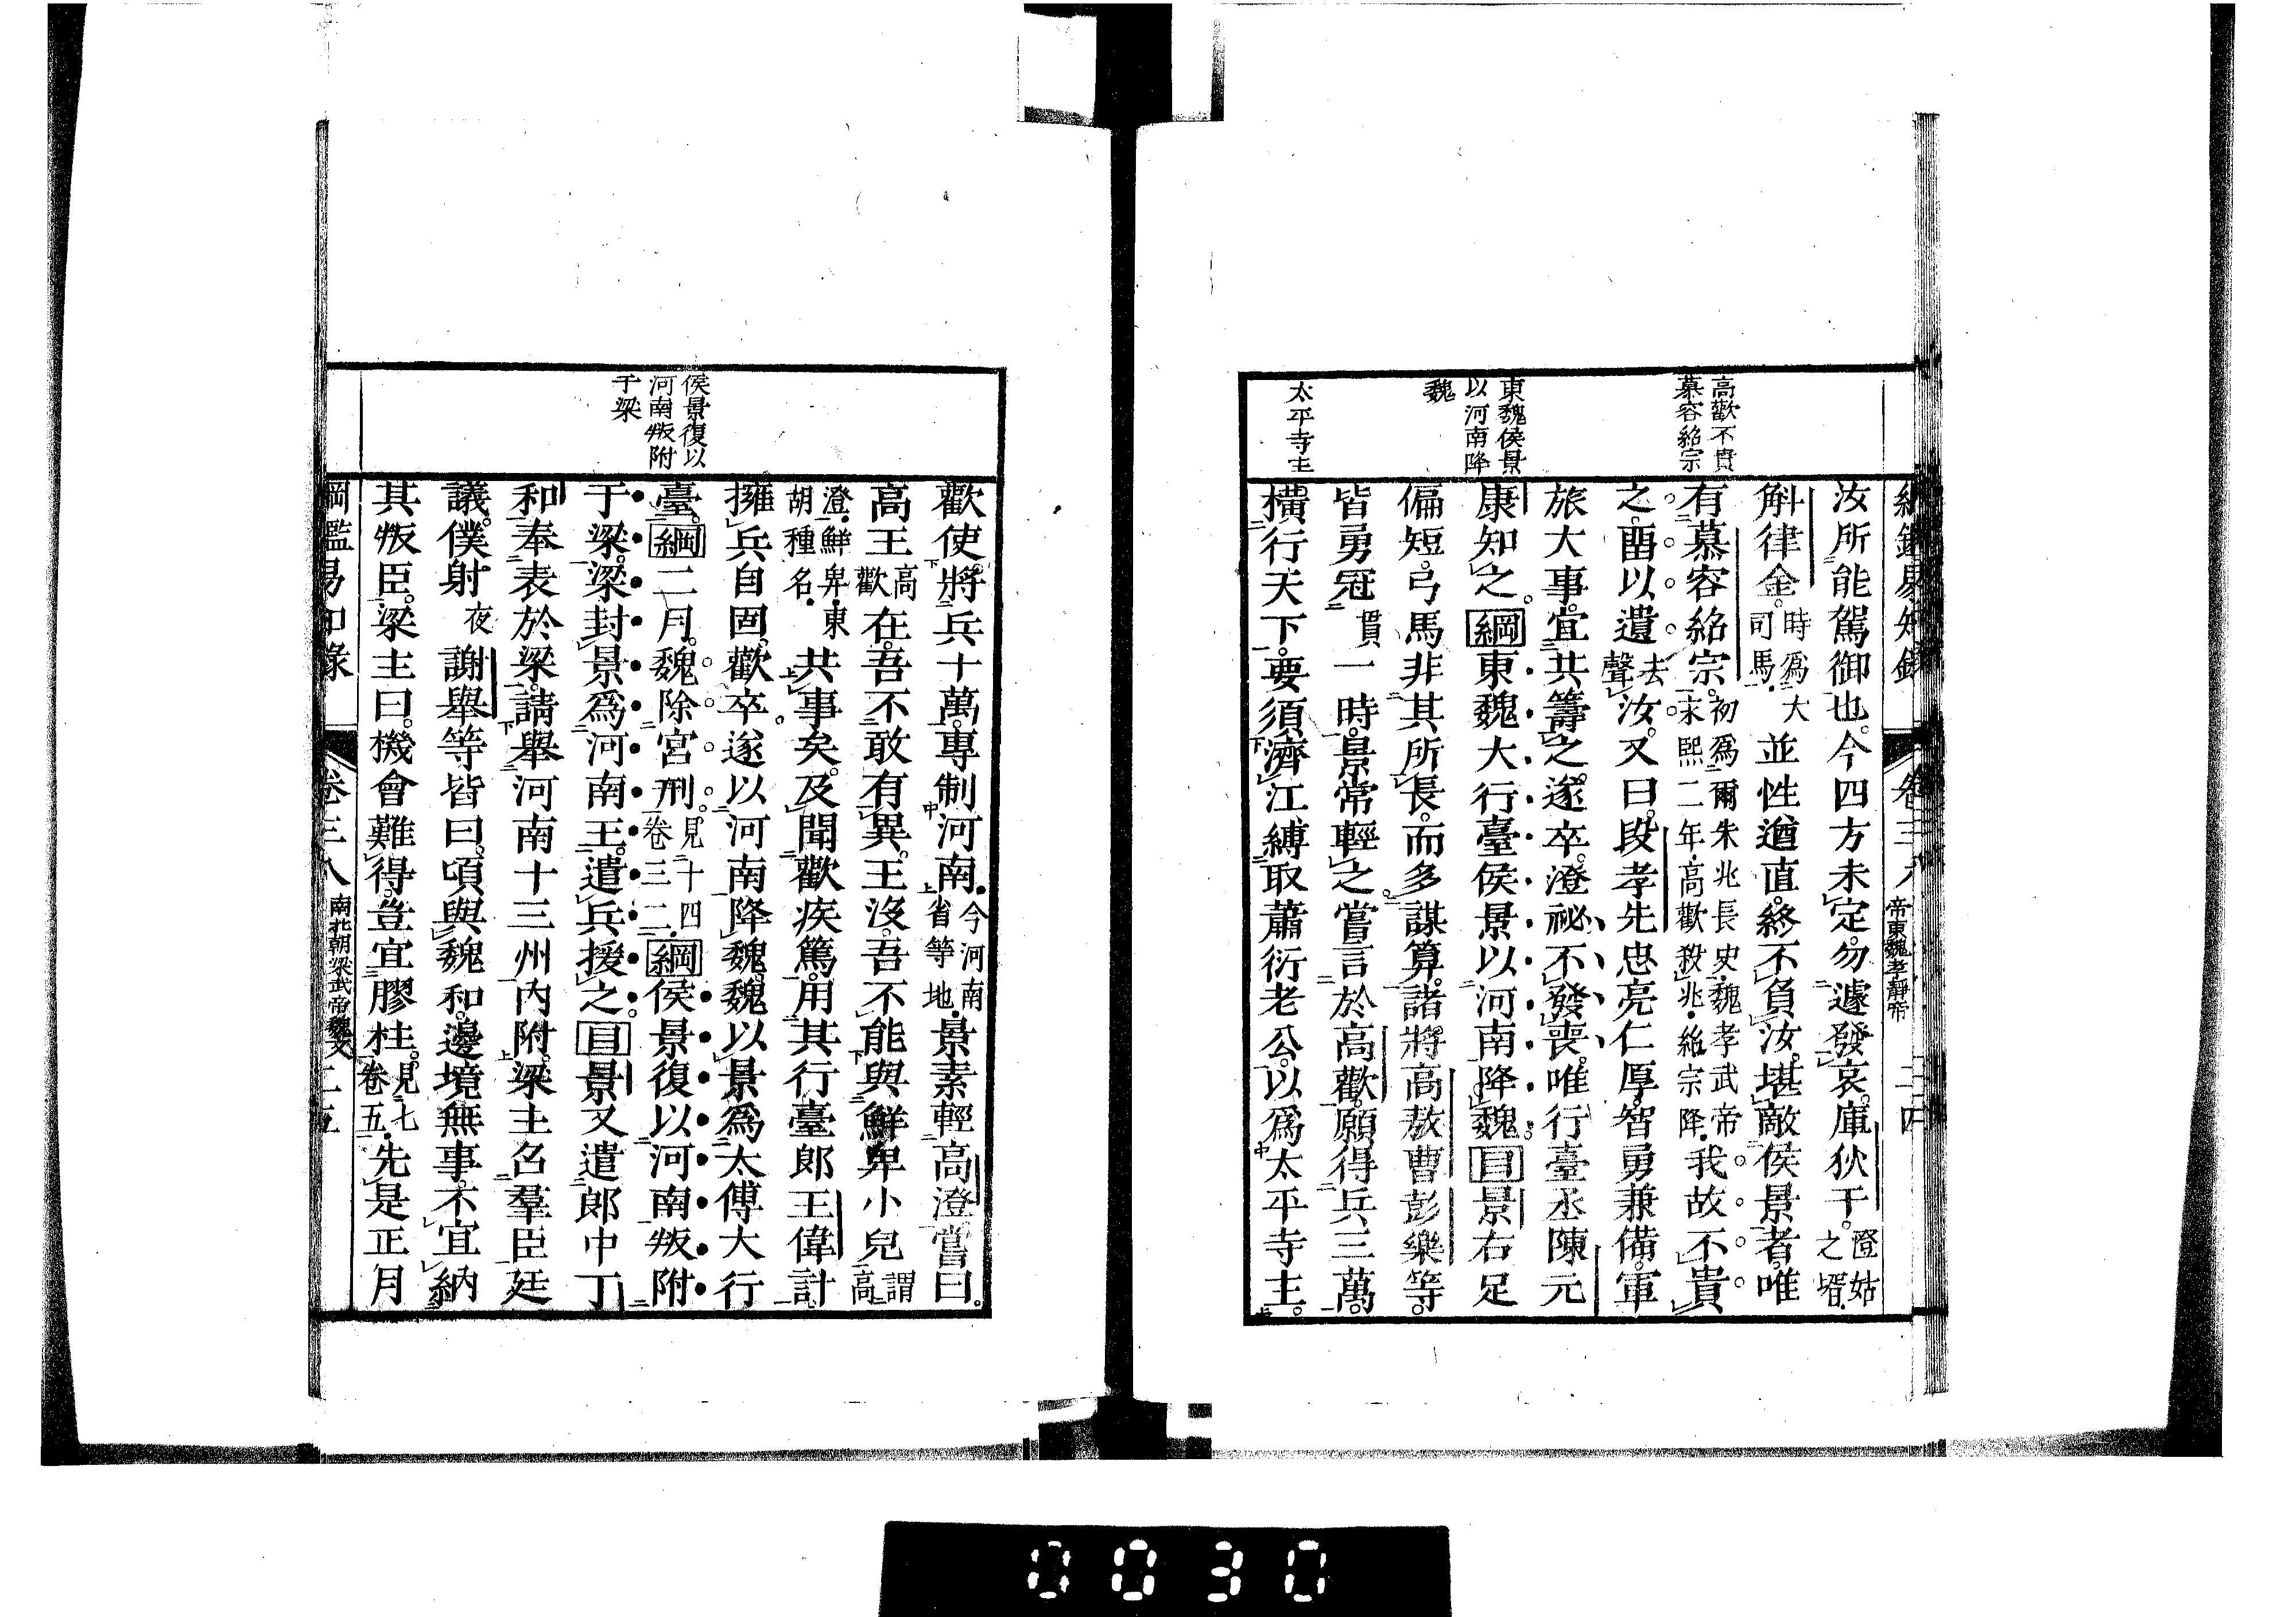 高歡不貴
慕容紹宗
東魏侯景
以河南降
魏
太平寺主
卷三八 帝東魏孝靜帝
汝所能駕御也。今四方未定。勿遽發哀。庫狄干。澄姑之壻。
斛律金。時爲大司馬。並性遒直。終不負汝。堪敵侯景者。唯
有慕容紹宗。初爲爾朱兆長史。魏孝武帝永熙二年。高歡殺兆。紹宗降。我故不貴
之。畱以遺去聲汝。又曰。段孝先忠亮仁厚。智勇兼備。軍
旅大事。宜共籌之。遂卒。澄祕不發喪。唯行臺丞陳元
康知之。綱東魏大行臺侯景以河南降魏。目景右足
偏短。弓馬非其所長。而多謀算。諸將高敖曹彭樂等。
皆勇冠貫一時。景常輕之。嘗言於高歡。願得兵三萬。
橫行天下。要須濟江縛取蕭衍老公。以爲太平寺主。
侯景復以
河南叛附
于梁
歡使將兵十萬。專制河南。今河南省等地。景素輕高澄。嘗曰。
高王高歡在。吾不敢有異。王沒。吾不能與鮮卑小兒謂高
澄。鮮卑。東胡種名。共事矣。及聞歡疾篤。用其行臺郎王偉計
擁兵自固。歡卒。遂以河南降魏。魏以景爲太傅大行
臺。綱二月。魏除宮刑。見十四卷三二。綱侯景復以河南叛附
于梁。梁封景爲河南王。遣兵援之。目景又遣郎中丁
和奉表於梁。請舉河南十三州內附。梁主召羣臣廷
議。僕射夜謝舉等皆曰。頃與魏和。邊境無事。不宜納
其叛臣。梁主曰。機會難得。豈宜膠柱。見七卷五。先是正月
綱鑑易知錄 卷三八 南北朝梁武帝魏文 二五